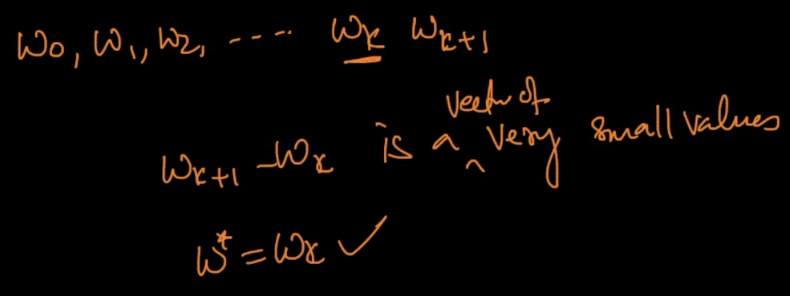 w₀, w₁, w₂, ---- wₖ wₖ₊₁
wₖ₊₁ - wₖ is a ^ vector of very small values
w* = wₖ ✓